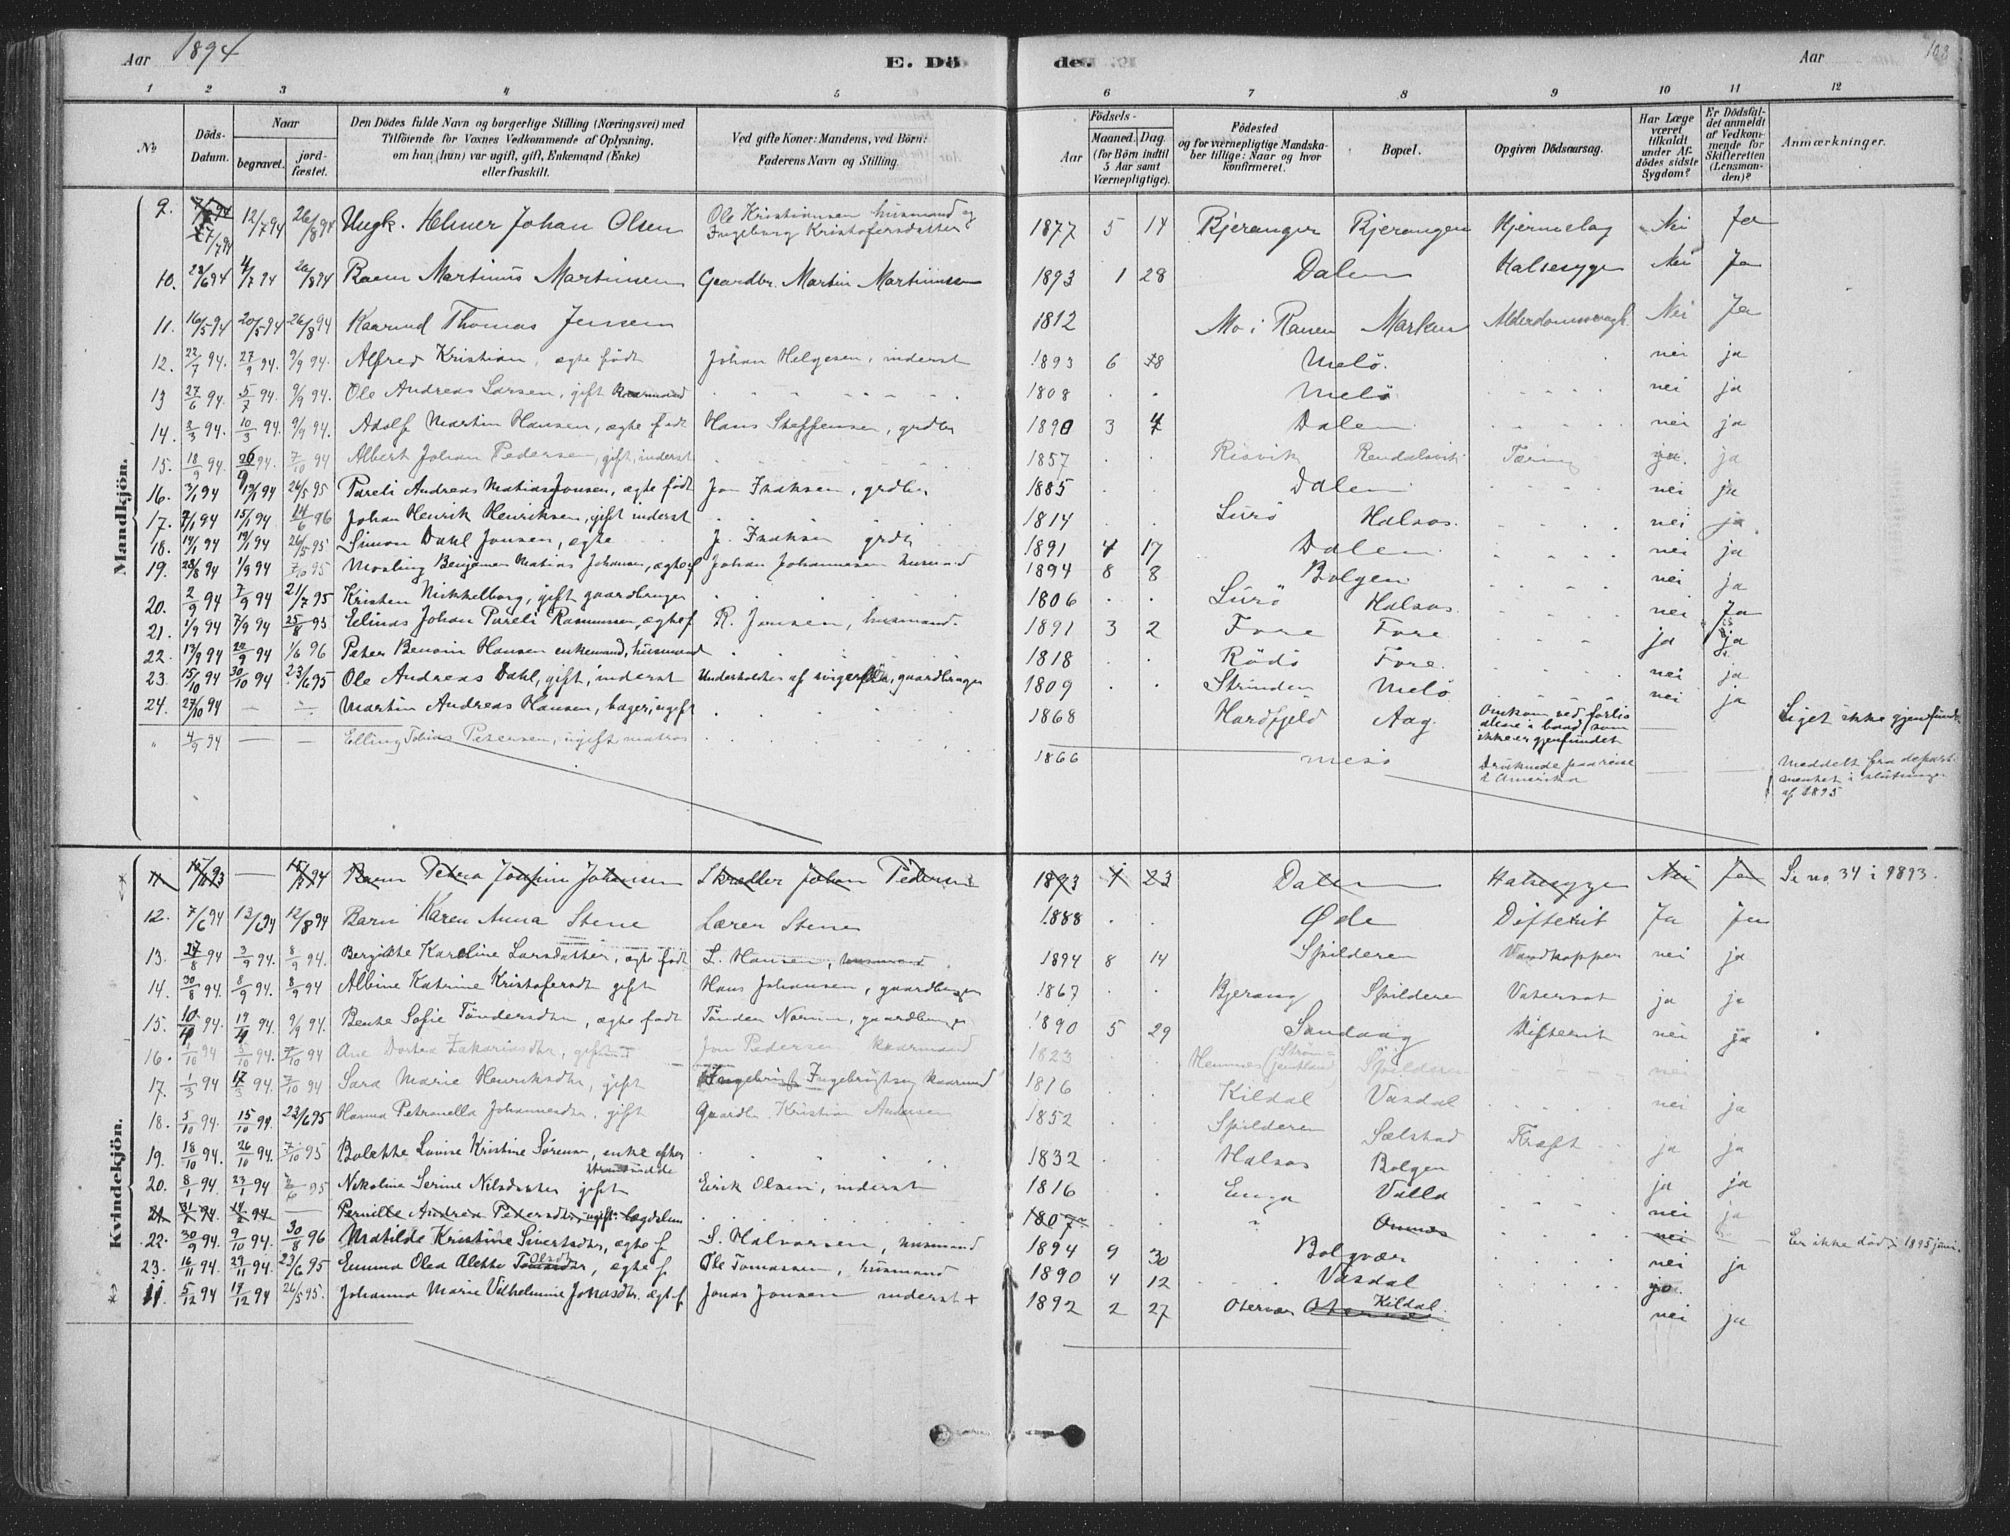 Aar 1894 E. Dö de. Aar 103
1 2 3 4 5 6 7 8 9 10 11 12
No. Döds-Datum. Naar begravet. jord-fæstet. Den Dödes fulde Navn og borgerlige Stilling (Næringsvei) med Tilföiende for Voxnes Vedkommende af Oplysning, om han (hun) var ugift, gift, Enkemand (Enke) eller fraskilt. Ved gifte Koner: Mandens, ved Börn: Faderens Navn og Stilling. Födsels- Aar Maaned. Dag. (for Börn indtil 5 Aar samt Værnepligtige). Födested og for værnepligtige Mandskaber tillige: Naar og hvor konfirmeret. Bopæl. Opgiven Dödsaarsag. Har Læge været tilkaldt under Afdödes sidste Sygdom? Er Dödsfaldet anmeldt af Vedkommende for Skifteretten (Lensmanden)? Anmærkninger.
Mandkjön.
9. 7/7 94 12/7 94 26/8 94 Ungk. Helmer Johan Olsen Ole Kristiansen husmand og Ingeborg Kristofersdatter 1877 5 14 Bjeranger Bjerangen Hjerneslag Nei Ja
10. 28/6 94 4/7 94 26/8 94 Barn Martinus Martinsen Gaardbr. Martin Martinussen 1893 1 28 Dalen Halsesyge Nei Ja
11. 16/5 94 20/5 94 26/8 94 Kaarmd Thomas Jensen 1812 Mo i Ranen Marken Alderdomssvagh. Nei Ja
12. 22/7 94. 27/9 94. 9/9 94. Alfred Kristian, ægte födt Johan Helgesen, inderst 1893 6 18 Melö. nei ja
13 27/6 94. 5/7 94. 9/9 94. Ole Andreas Larsen, gift kaarmand 1808 Melö nei ja
14. 2/3 94. 10/3 94. 9/9 94. Adolf Martin Hansen, ægte födt Hans Steffensen, grdbr 1890 3 4 Dalen nei ja
15. 18/9 94. 26/9 94. 7/10 94 Albert Johan Pedersen, gift, inderst 1857 Risvik Rendalsvik Tæring ja. ja
16. 3/1 94 19/1 94 26/5 95 Pareli Andreas Matias Jonsen, ægte födt Jon Isaksen, grdbr 1885 Dalen nei ja
17. 7/1 94 15/1 94 14/6 96 Johan Henrik Henriksen, gift inderst 1814 Lurö Halsos. nei ja
18. 14/1 94 19/1 94 26/5 95 Simon Dahl Jonsen, ægte J. Isaksen grdbr 1891 4 17 Dalen nei ja
19. 28/8 94 1/9 94 7/10 95 Mosling Benjamin Matias Johansen, ægte f Johan Johannesen husmand 1894 8 8 Bolgen nei ja
20. 2/9 94 7/9 94 21/7 95 Kristen Mikkelborg, gift gaardbruger 1806 Lurö Halsos. nei ja
21. 1/9 94 7/9 94 25/8 95 Edinas Johan Pareli Rasmussen, ægte f R. Jensen, husmand. 1891 3 2 Fore Fore nei ja
22. 13/9 94 20/9 94 1/6 96 Peter Benoni Hansen enkemand, husmand 1818 Rödö Fore. ja ja
23. 15/10 94 30/10 94 23/6 95 Ole Andreas Dahl, gift, inderst Underholdes af svigersön, gaardbruger 1809 Strinden Melö nei ja
24. 27/10 94 Martin Andreas Hansen, bager, ugift 1868 Hardfjeld Aag. Omkom ved forlis alene i baad, som ikke er gjenfundet nei ja Liget ikke gjenfundet
" 4/9 94 Elling Tobias Petersen, ugift matros 1866 Mesö Druknede paa reise i Amerika Meddelt fra departmentet i slutningen af 1895
Kvindekjön.
11 15/11 93 15/7 94 Barn Petra Josefine Johansen Skrædder Johan Pedersen 1893 1 23 Dalen Halsesyge Nei Ja Se no 34 i 1893.
12. 7/6 94 13/6 94 12/8 94 Barn Karen Anna Stene Lærer Stene 1888 Øde Difterit Ja Ja
13. 27/8 94 3/9 94. 8/9 94. Bergitte Karoline Larsdatter, ægte födt L. Hansen, husmand 1894 8 14 Spilderen Vandkopper nei ja
14. 30/8 94. 8/9 94. 8/9 94 Albine Katrine Kristofersdtr gift Hans Johansen, gaardbruger 1867 Bjerang Spilderen Vatersot ja ja
15. 10/4 94. 19/4 94. 9/9 94. Bente Sofie Töndersdtr, ægte födt Tönder Norum, gaardbruger 1890 5 29 Sandaag Difterit nei ja
16. 1/10 94 5/10 94. 7/10 94 Ane Dortea Zakariasdtr, gift Jon Pedersen kaarmand 1823 Hemnes (Ström Spilderen nei
17. 1/3 94 17/3 94. 7/10 94 Sara Marie Henriksdtr, gift Ingebrigt Ingebrigtsen kaarmd 1816 Kildal Vasdal nei ja
18. 5/10 94 15/10 94 23/6 95 Hanna Petronella Johannesdtr, gift Gaardbr. Kristian Andersen 1852 Spilderen Selstad Kræft ja ja
19. 18/10 94. 26/10 94. 7/10 95 Bolette Lovise Kristine Sörensen, enke efter strandsidde 1832 Halsos Bolgen ja ja
20. 8/1 94. 23/1 94 2/6 95 Nikoline Serine Nilsdatter gift Erik Olsen, inderst 1816 Enga Valla nei ja
21 31/1 94 14/2 94 Pernille Andrea Pedersdtr, ugift lægdelem 1807 " Ommes nei Er ikke död i 1895 juni.
22. 30/9 94. 9/10 94. 30/8 96 Matilde Kristine Sivertsdtr, ægte f. S. Halvorsen, husmand 1894 9 30 Bolgvær nei ja
23. 16/11 94. 29/11 94. 23/6 95 Emma Olea Alette Tomasdtr Olsdtr, ægte f. Ole Tomassen, husmand 1890 4 12 Vasdal ja
11 5/12 94 19/12 94 26/5 95. Johanna Marie Vilhelmine Jonasdtr. ægt f Jonas Jonsen inderst + 1892 2 27 Otervær Kildal. nei ja